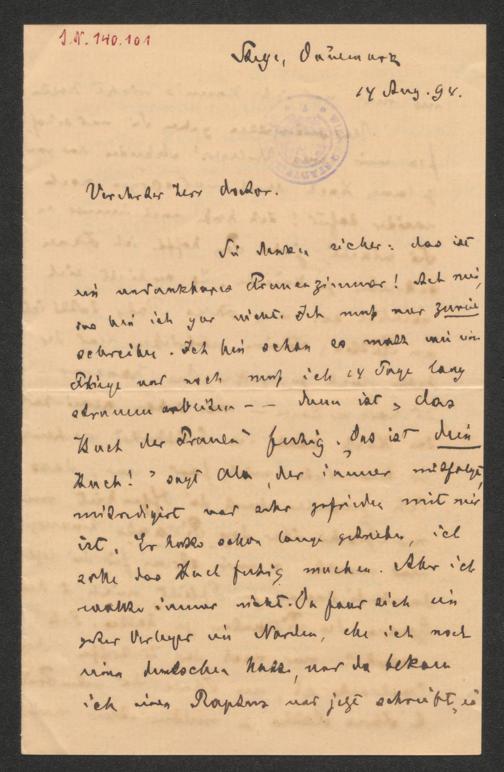 J.N. 140.101
Stege, Dänemark
14 Aug. 94.
Verehrter Herr Doktor.
Sie denken sicher: das ist
ein undankbares Frauenzimmer! Ach nein,
das bin ich gar nicht. Ich muß nur zuviel
schreiben. Ich bin schon so matt wie ein
Fliege und noch muß ich 14 Tage lang
stramm arbeiten – – dann ist „das
Buch der Frauen“ fertig. „Das ist dein
Buch!“ sagt Ola, der immer mitfolgt,
mitredigirt und sehr zufrieden mit mir
ist. Er hatte schon lange getrieben, ich
solle das Buch fertig machen. Aber ich
wollte immer nicht. Da fand sich ein
guter Verleger im Norden, ehe ich noch
einen deutschen hatte, und da bekam
ich einen Raptus und jetzt schreibt „es